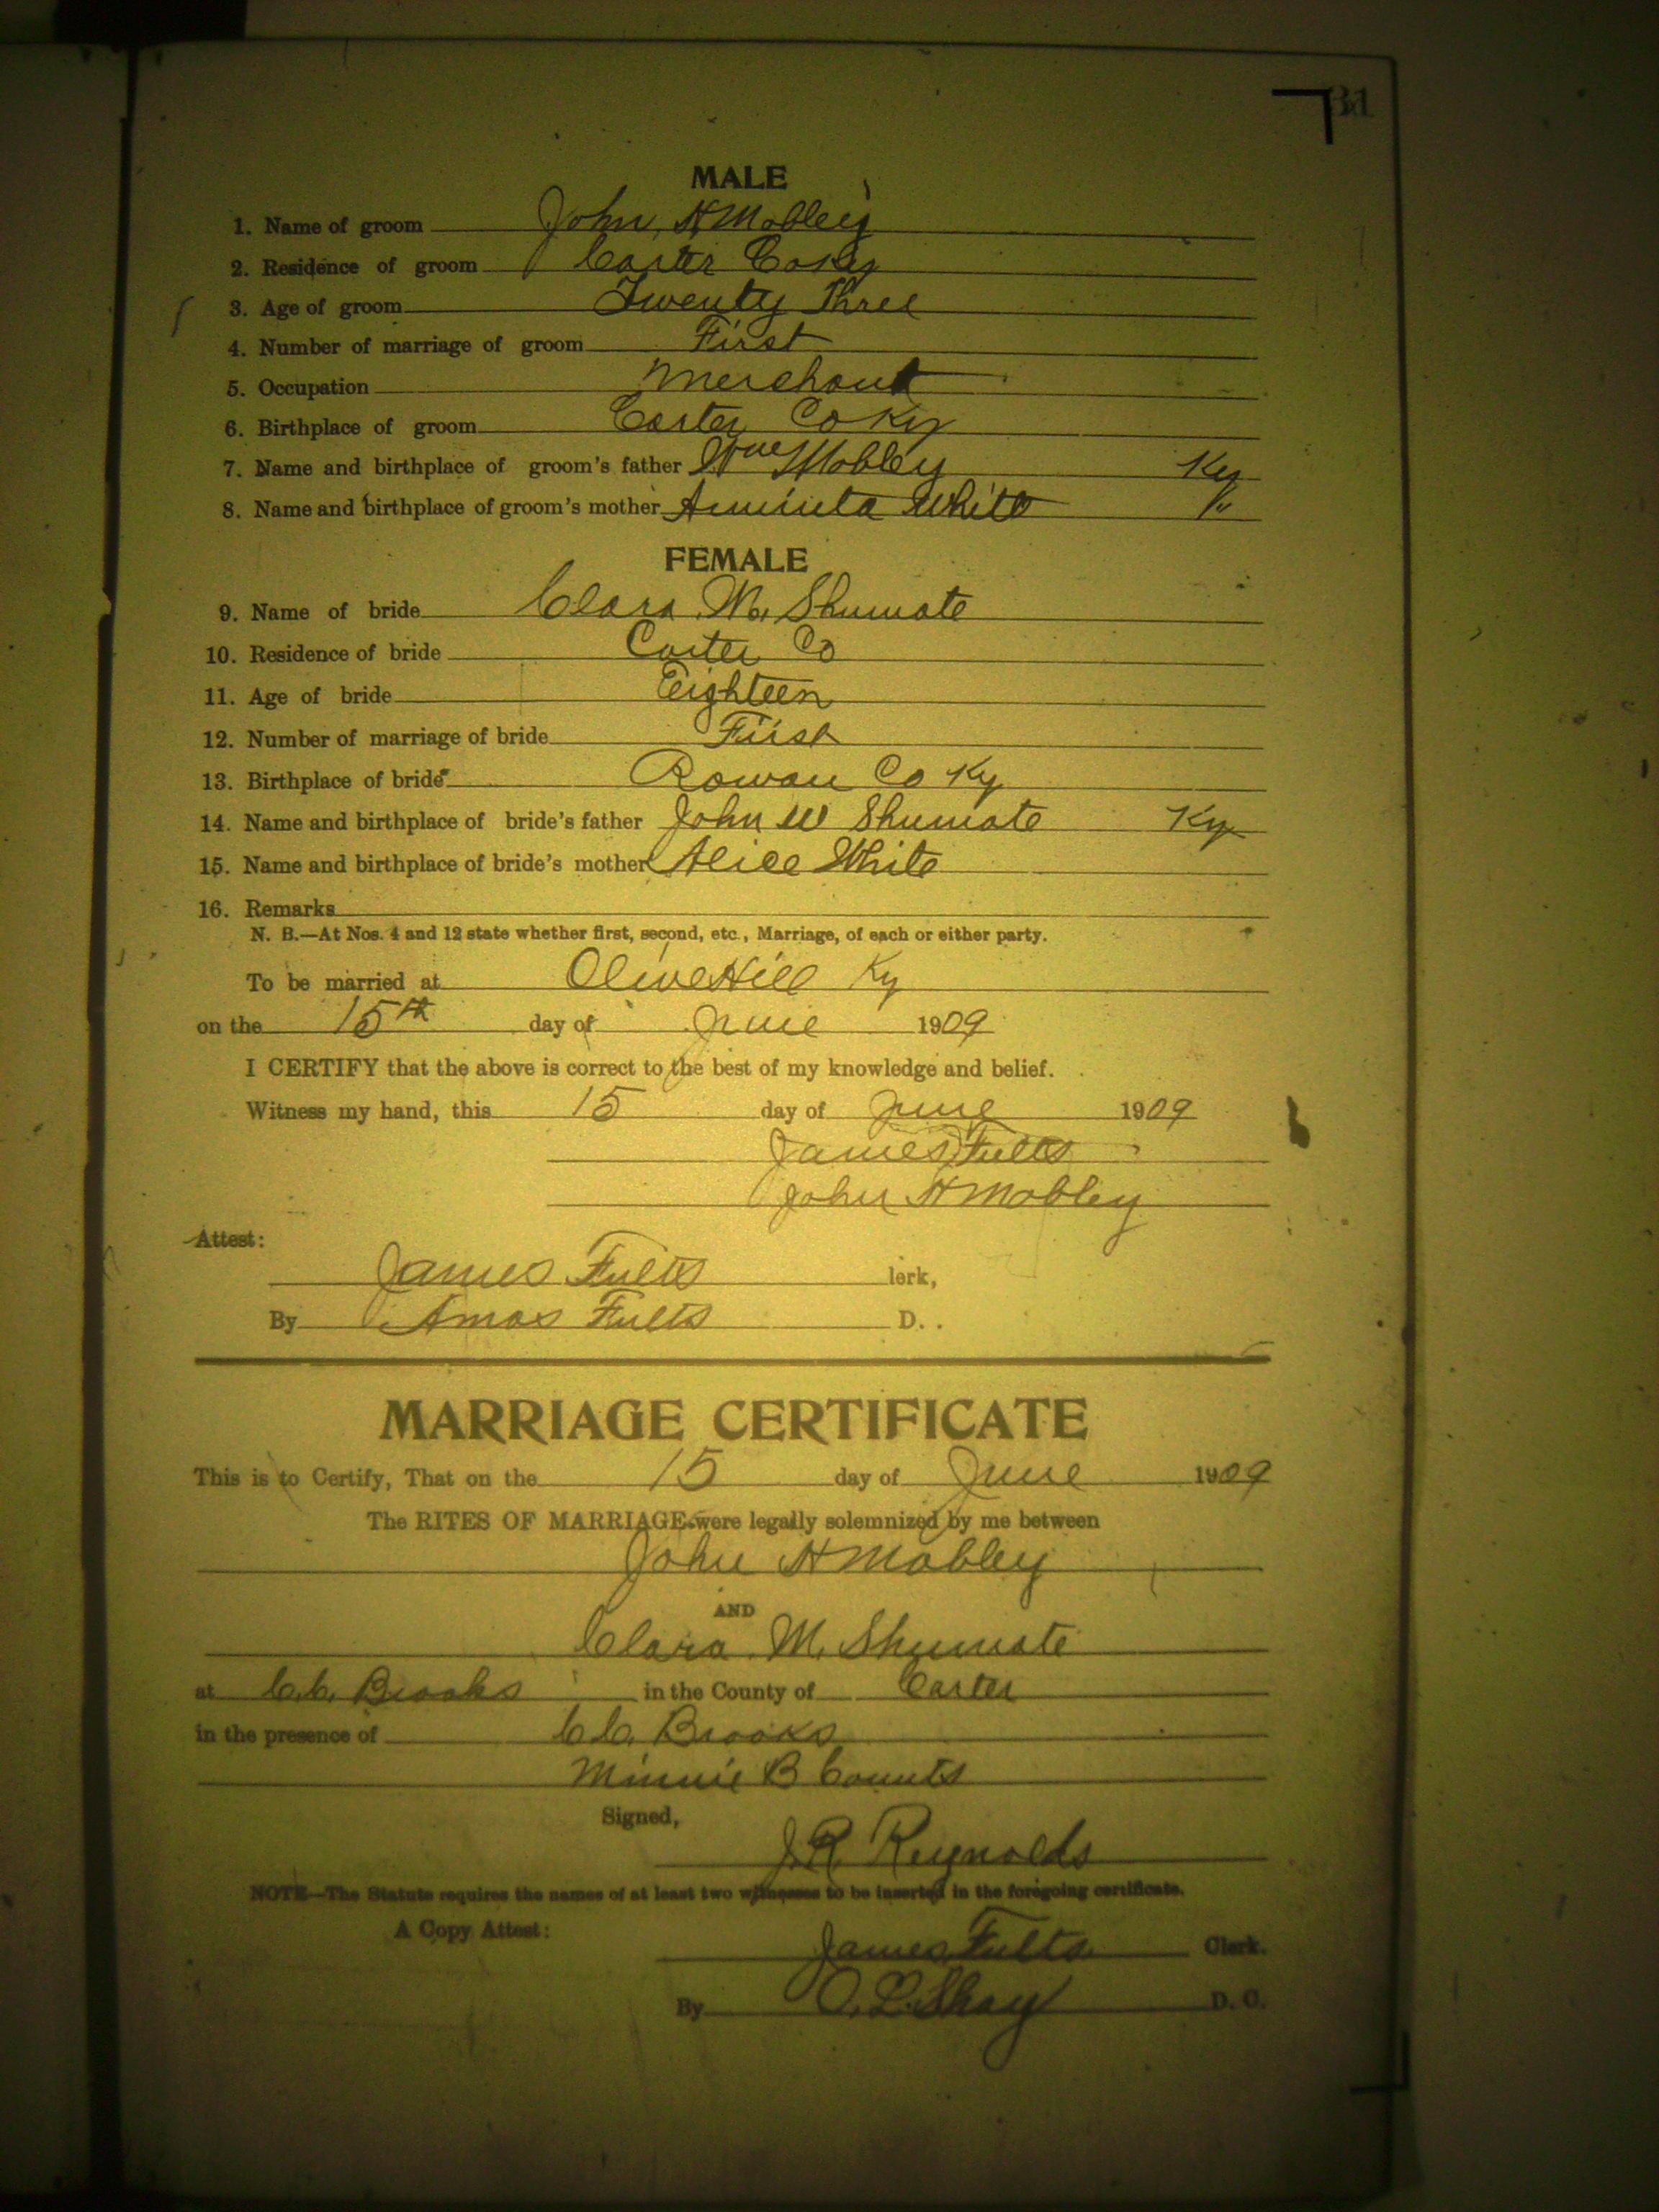 31
MALE
1. Name of groom John H Mobley
2. Residence of groom Carter Co Ky
3. Age of groom Twenty Three
4. Number of marriage of groom First
5. Occupation Merchant
6. Birthplace of groom Carter Co Ky
7. Name and birthplace of groom's father Wm Mobley Ky
8. Name and birthplace of groom's mother White "
FEMALE
9. Name of bride Clara M. Shumate
10. Residence of bride Carter Co
11. Age of bride Eighteen
12. Number of marriage of bride First
13. Birthplace of bride Rowan Co Ky
14. Name and birthplace of bride's father John W Shumate Ky
15. Name and birthplace of bride's mother Alice White
16. Remarks
N. B.—At Nos. 4 and 12 state whether first, second, etc., Marriage, of each or either party.
To be married at Olive Hill Ky
on the 15th day of June 1909
I CERTIFY that the above is correct to the best of my knowledge and belief.
Witness my hand, this 15 day of June 1909
James Fults
John H Mobley
Attest:
James Fults lerk,
By Amos Fults D. .
MARRIAGE CERTIFICATE
This is to Certify, That on the 15 day of June 1909
The RITES OF MARRIAGE were legally solemnized by me between
John H Mobley
AND
Clara M. Shumate
at C.C. Brooks in the County of Carter
in the presence of C.C. Brooks
Minnie B Counts
Signed,
J.R. Reynolds
NOTE—The Statute requires the names of at least two witnesses to be inserted in the foregoing certificate.
A Copy Attest:
James Fults Clerk.
By O. L. Shay D. C.